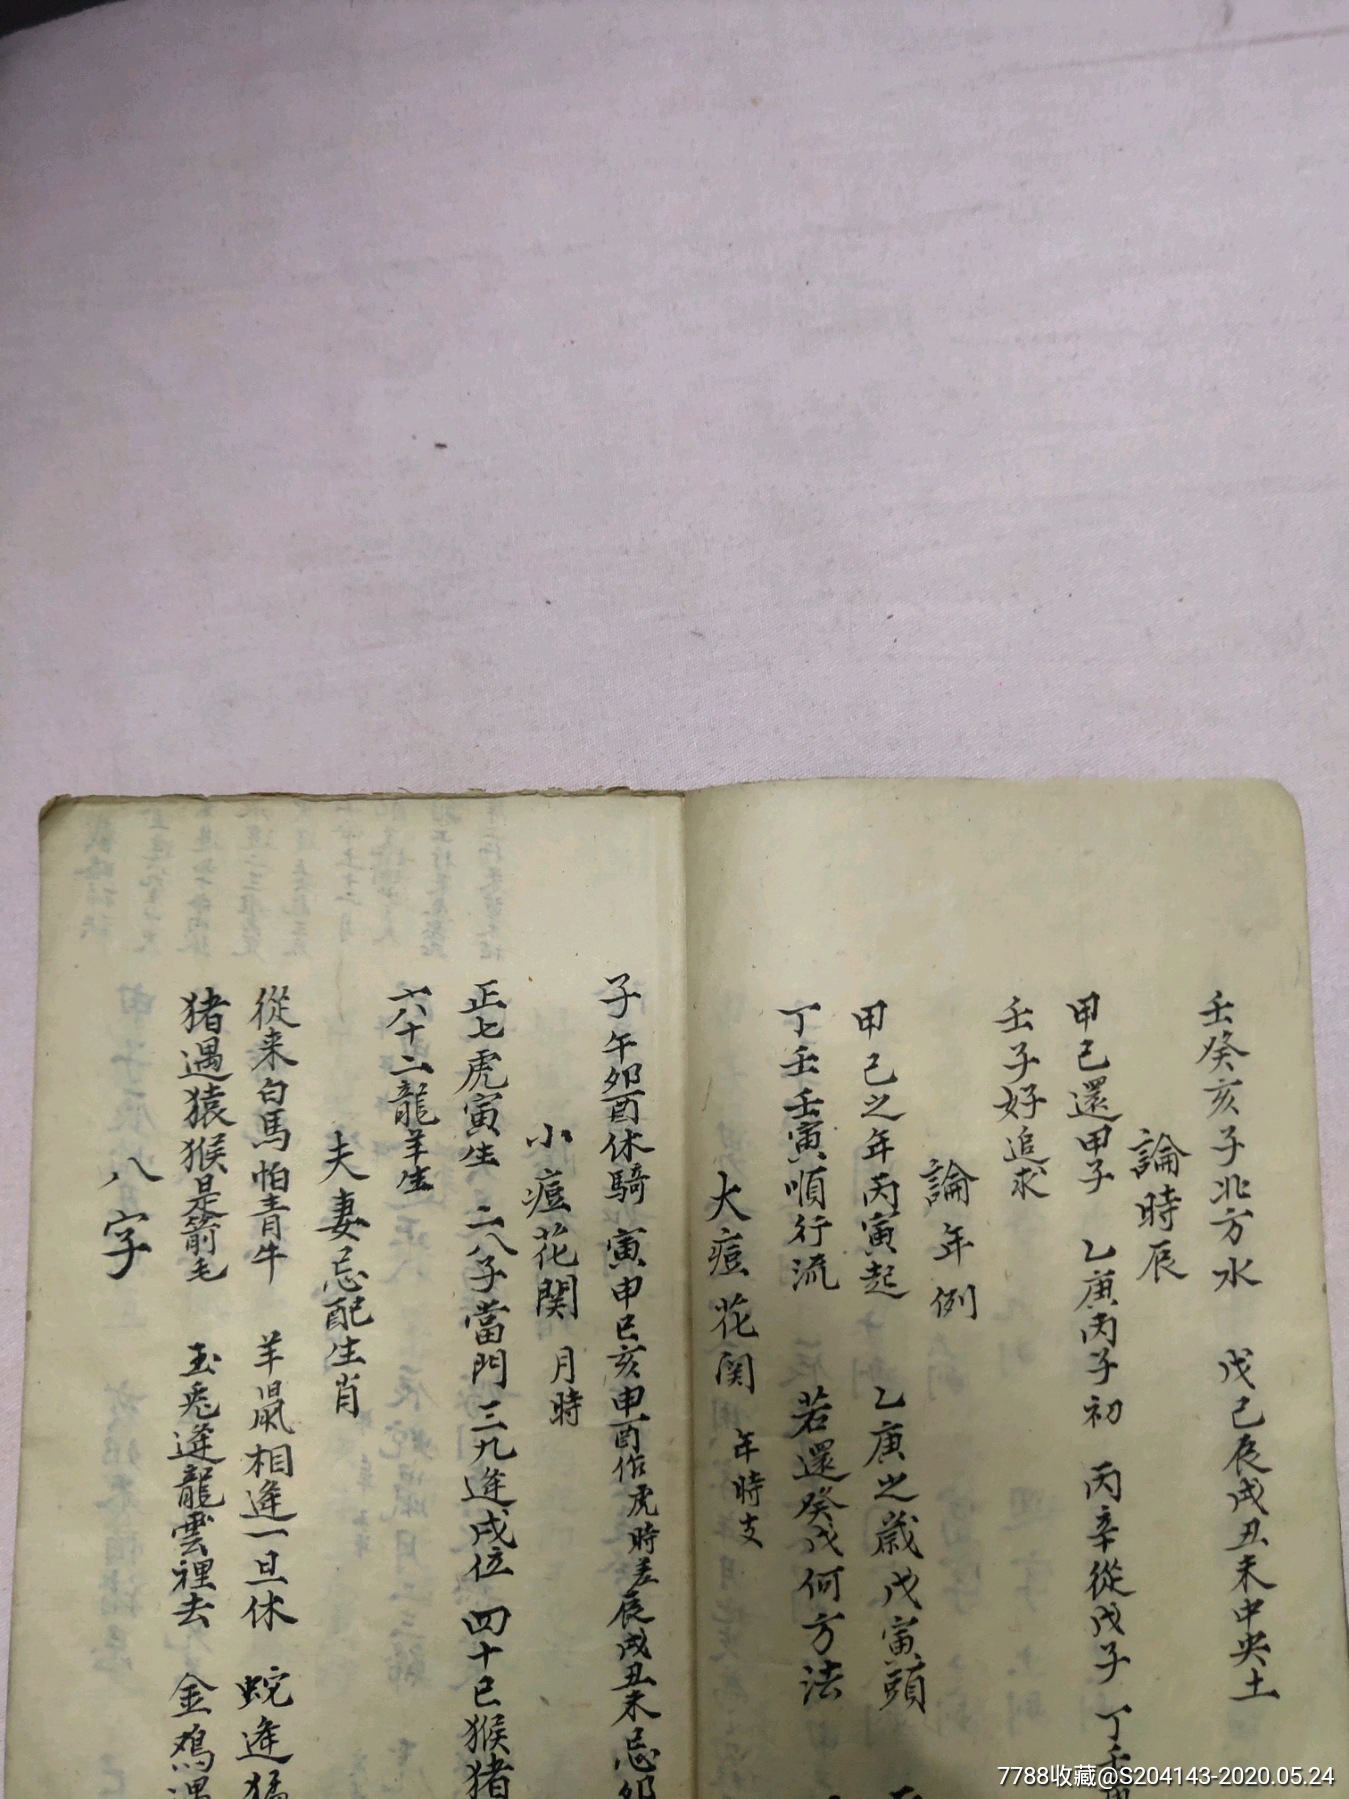 壬癸亥子北方水　戊己辰戌丑未中央土
論時辰
甲己還甲子　乙庚丙子初　丙辛從戊子　丁壬
壬子好追求
論年例
甲己之年丙寅起　乙庚之歲戊寅頭
丁壬壬寅順行流　若還癸戊何方法
大痘花関　年時支
子午卯酉休騎　寅申巳亥申酉作虎時差辰戌丑未忌卯
小痘花関　月時
正七虎寅生　二八子當門　三九逢戌位　四十巳猴猪
六十二龍羊生
夫妻忌配生肖
從来白馬怕青牛　羊鼠相逢一旦休　蛇逢猛
猪遇猿猴是箭毛　玉兎逢龍雲裡去　金鴉遇
八字
7788收藏@S204143-2020.05.24